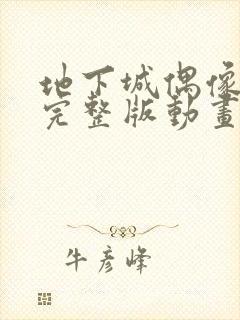 地下城偶像
完整版動畫
牛彦峰